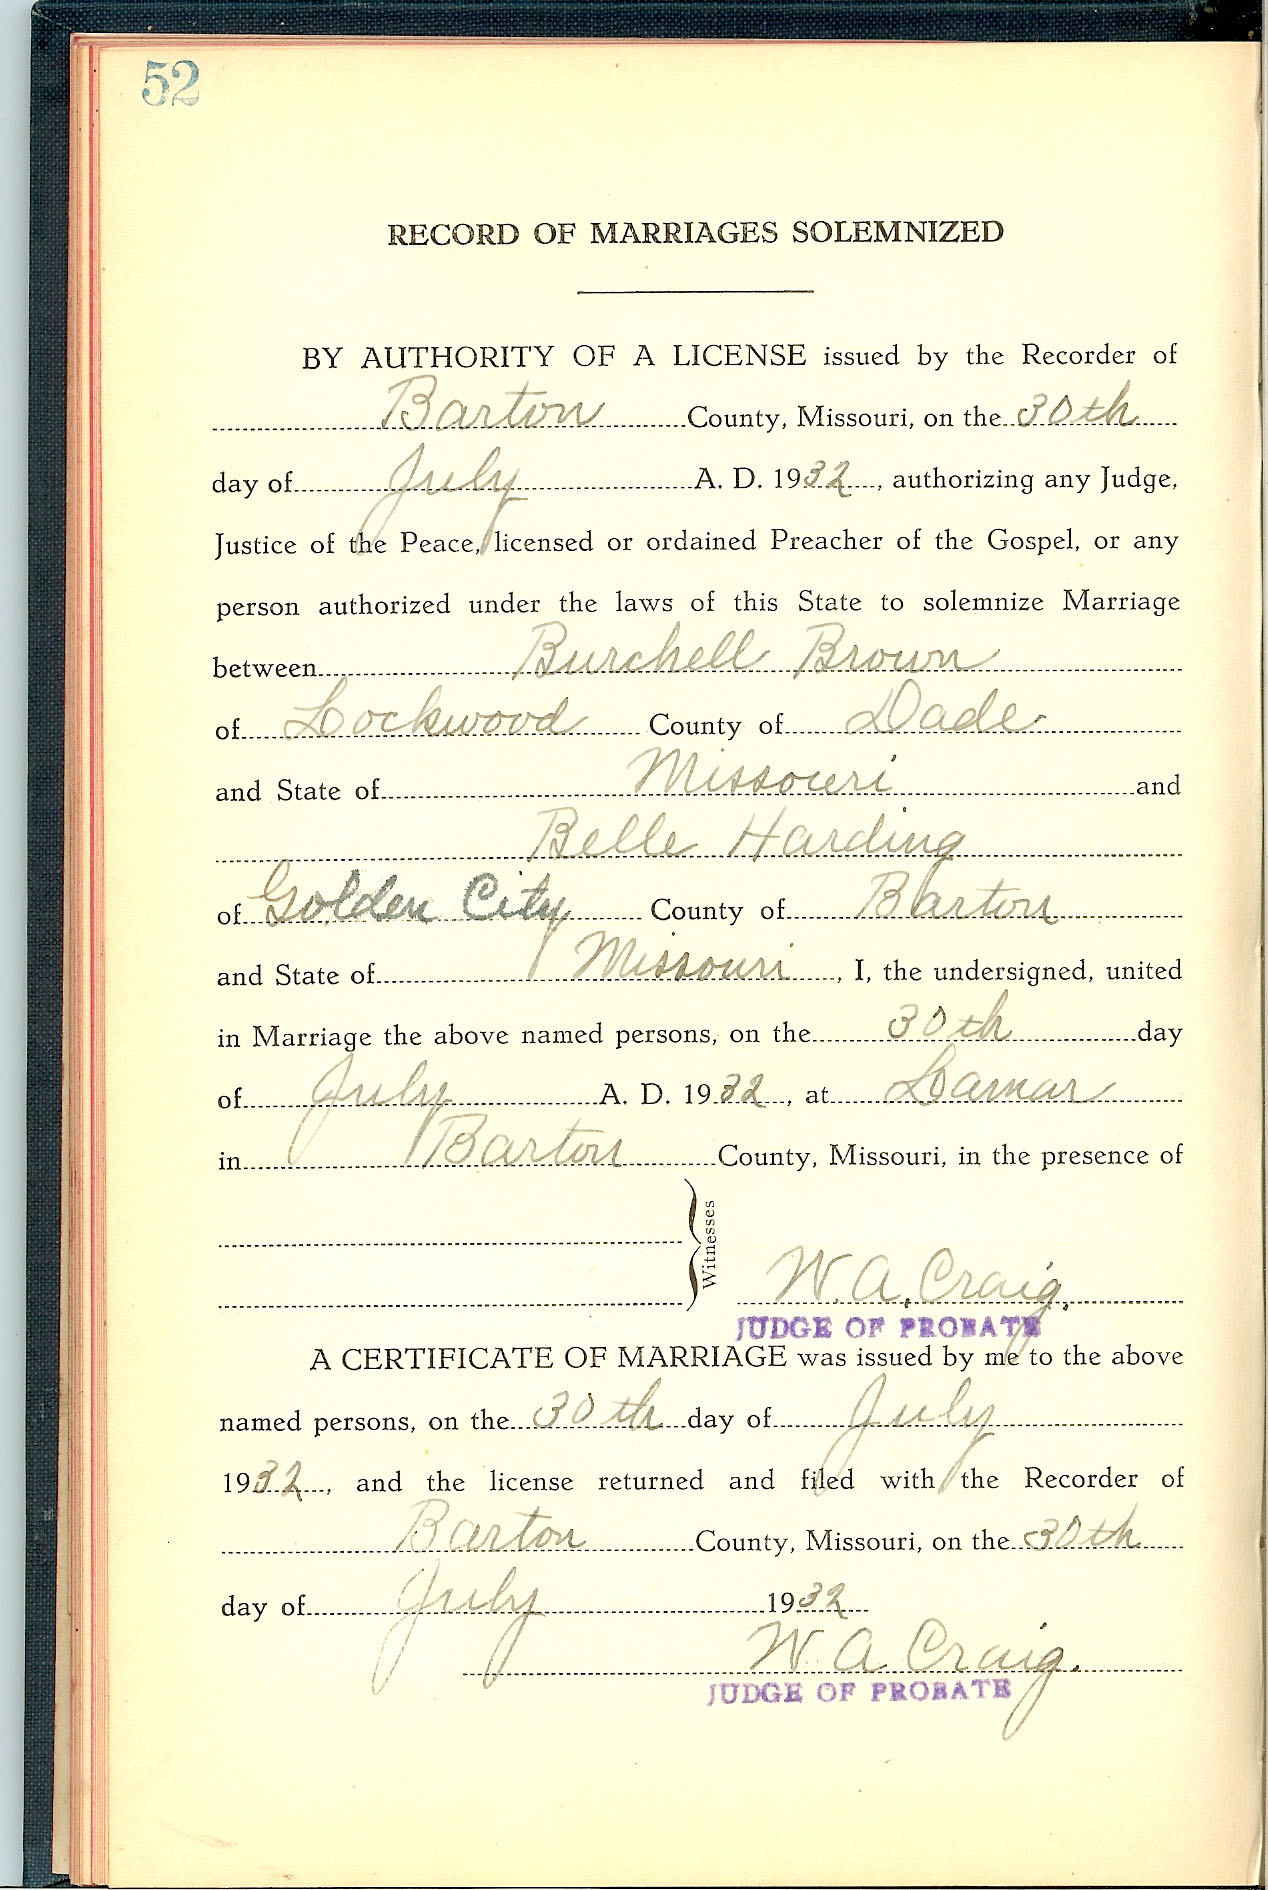 52
RECORD OF MARRIAGES SOLEMNIZED
BY AUTHORITY OF A LICENSE issued by the Recorder of
Barton County, Missouri, on the 30th
day of July A. D. 1932, authorizing any Judge,
Justice of the Peace, licensed or ordained Preacher of the Gospel, or any
person authorized under the laws of this State to solemnize Marriage
between Burchell Brown
of Lockwood County of Dade
and State of Missouri and
Belle Harding
of Golden City County of Barton
and State of Missouri, I, the undersigned, united
in Marriage the above named persons, on the 30th day
of July A. D. 1932, at Lamar
in Barton County, Missouri, in the presence of
Witnesses
W. A. Craig.
JUDGE OF PROBATE
A CERTIFICATE OF MARRIAGE was issued by me to the above
named persons, on the 30th day of July
1932, and the license returned and filed with the Recorder of
Barton County, Missouri, on the 30th
day of July 1932
W. A. Craig.
JUDGE OF PROBATE